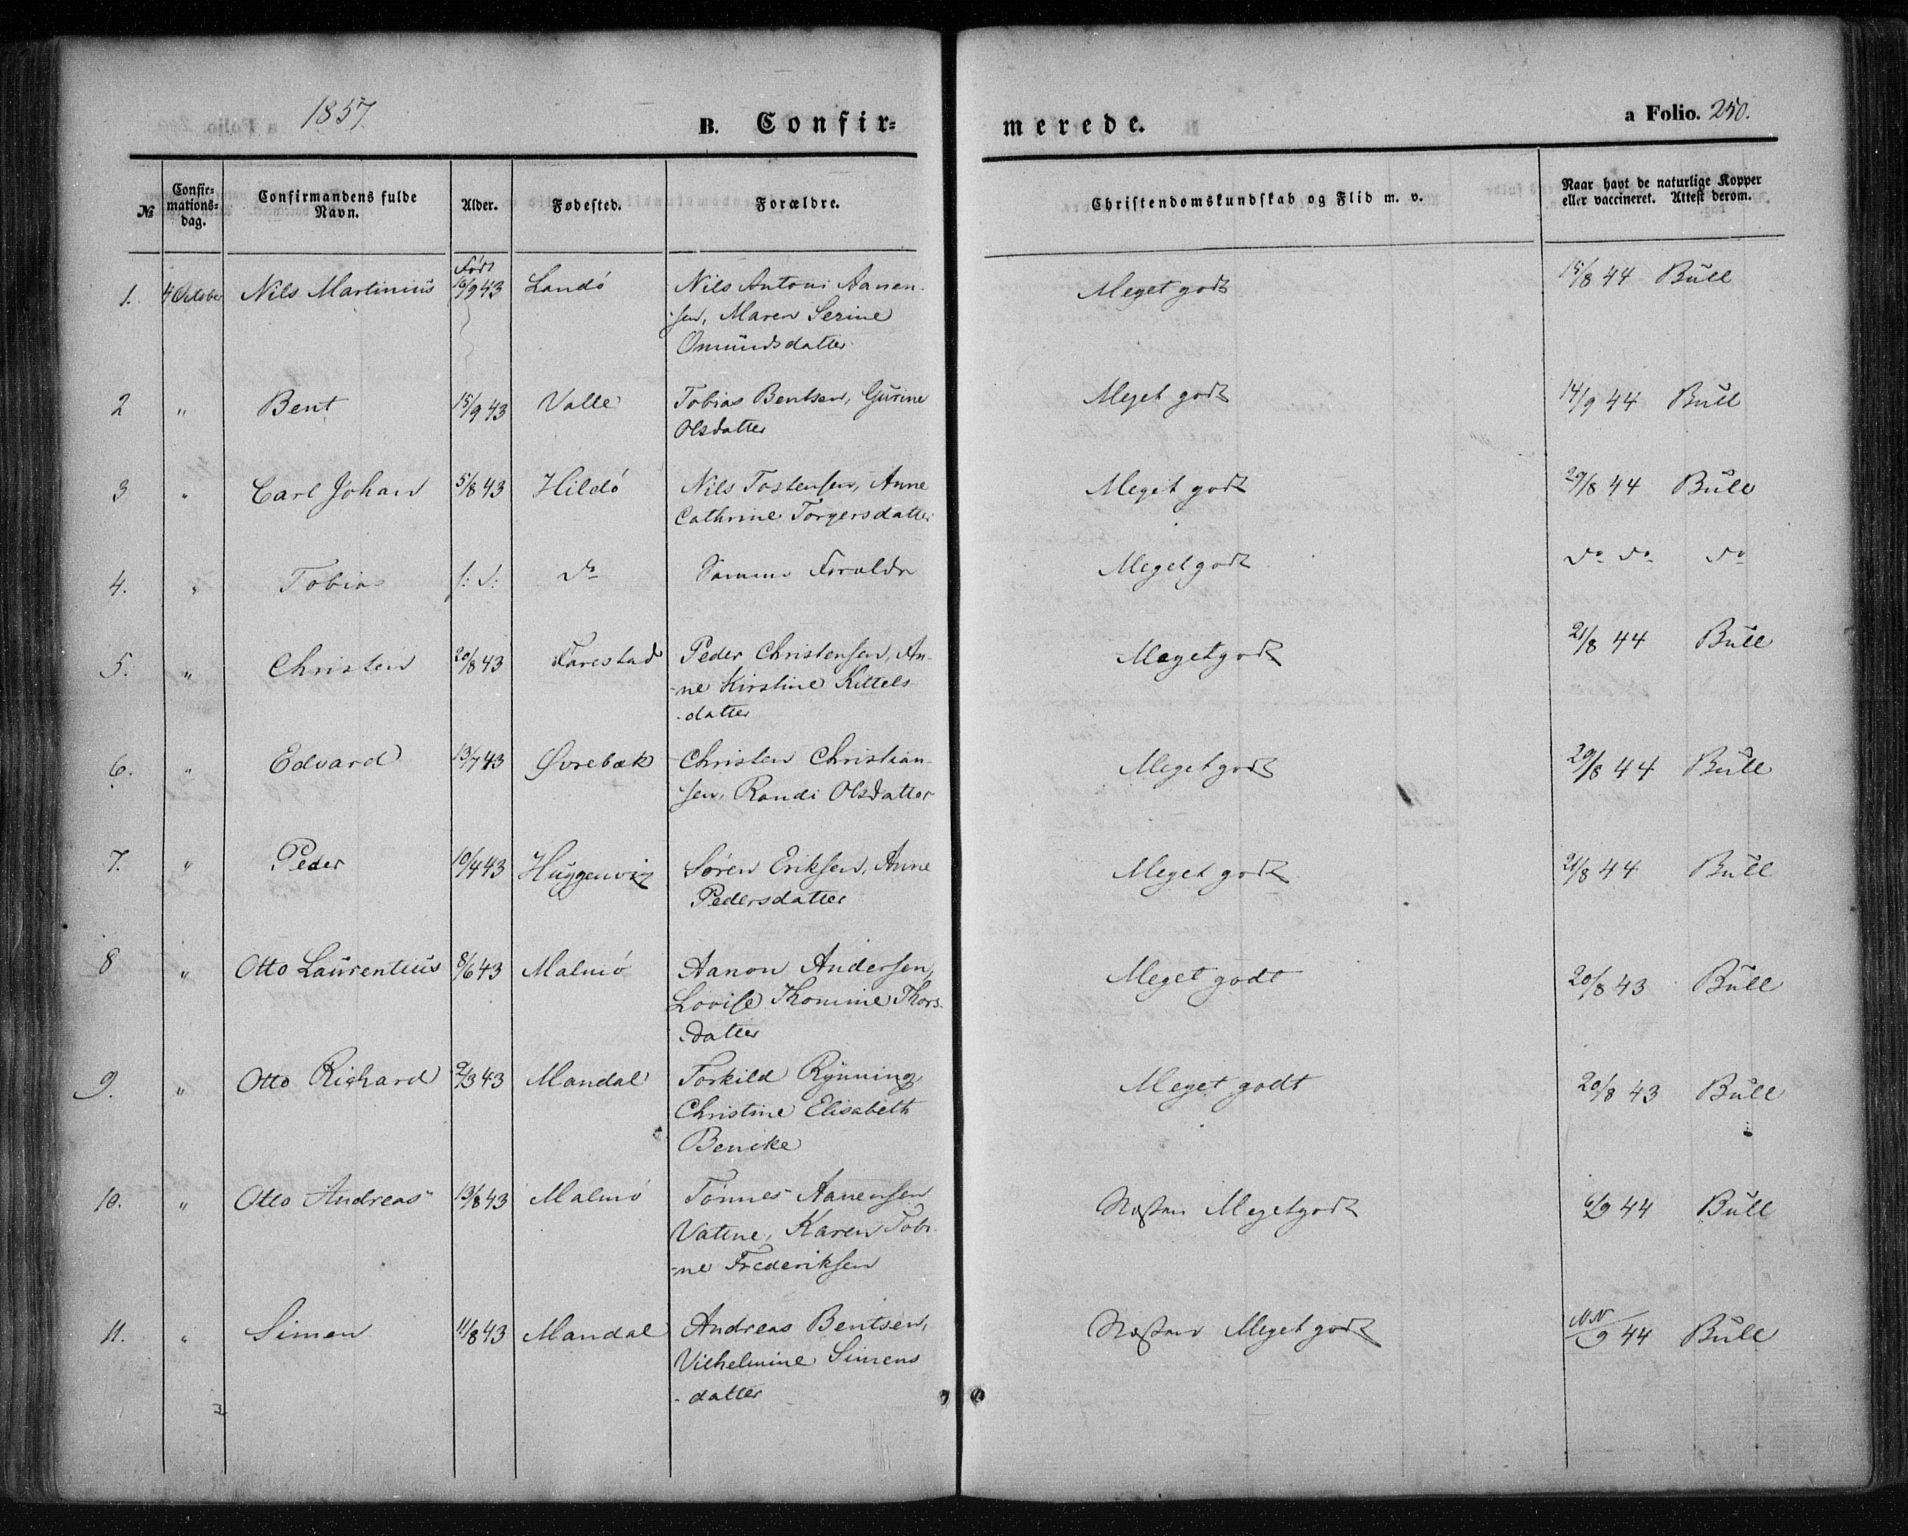 1857.
B. Confir= merede.
a Folio. 250.
№ Confir= mations= dag. Confirmandens fulde Navn. Alder. Fødested. Forældre. Christendomskundskab og Flid m. v. Naar havt de naturlige Kopper eller vaccineret. Attest derom.
Født
1. 4 October Nils Martinius 10/9 43 Landö Nils Antoni Aanen- Meget godt 15/8 44 Bull
sen, Maren Serine
Omundsdatter
2 " Bent 15/9 43 Valle Tobias Bentsen, Gurine Meget godt 14/9 44 Bull
Olsdatter
3 " Carl Johan 5/8 43 Hildö Nils Tostensen, Anne Meget godt 29/8 44 Bull
Cathrine Torgersdatter
4. " Tobias s: d: do Samme Forældr Meget godt do do do
5. " Christen 20/8 43 Farestad Peder Christensen, An- Meget godt 21/8 44 Bull
-ne Kirstine Kittels
-datter
6. " Edvard 13/7 43 Øvrebæk Christen Christian- Meget godt 29/8 44 Bull
sen, Randi Olsdatter
7. " Peder 10/4 43 Huggenvig Søren Eriksen, Anne Meget godt 21/8 44 Bull
Pedersdatter
8 " Otto Laurentius 8/6 43 Malmö Aanon Andersen, Meget godt 20/8 43 Bull
Lovise Thomine Thors-
-datter
9. " Otto Richard 2/3 43 Mandal Torkild Rynning, Meget godt 20/8 43 Bull
Christine Elisabeth
Bencke
10. " Otto Andreas 13/8 43 Malmö Tönnes Aanensen Næsten Meget godt 6/9 44 Bull
Vatne, Karen Tobi-
-ne Frederiksen
11. " Simen 11/8 43 Mandal Andreas Bentsen, Næsten Meget godt NN/9 44 Bull
Vilhelmine Simens
-datter